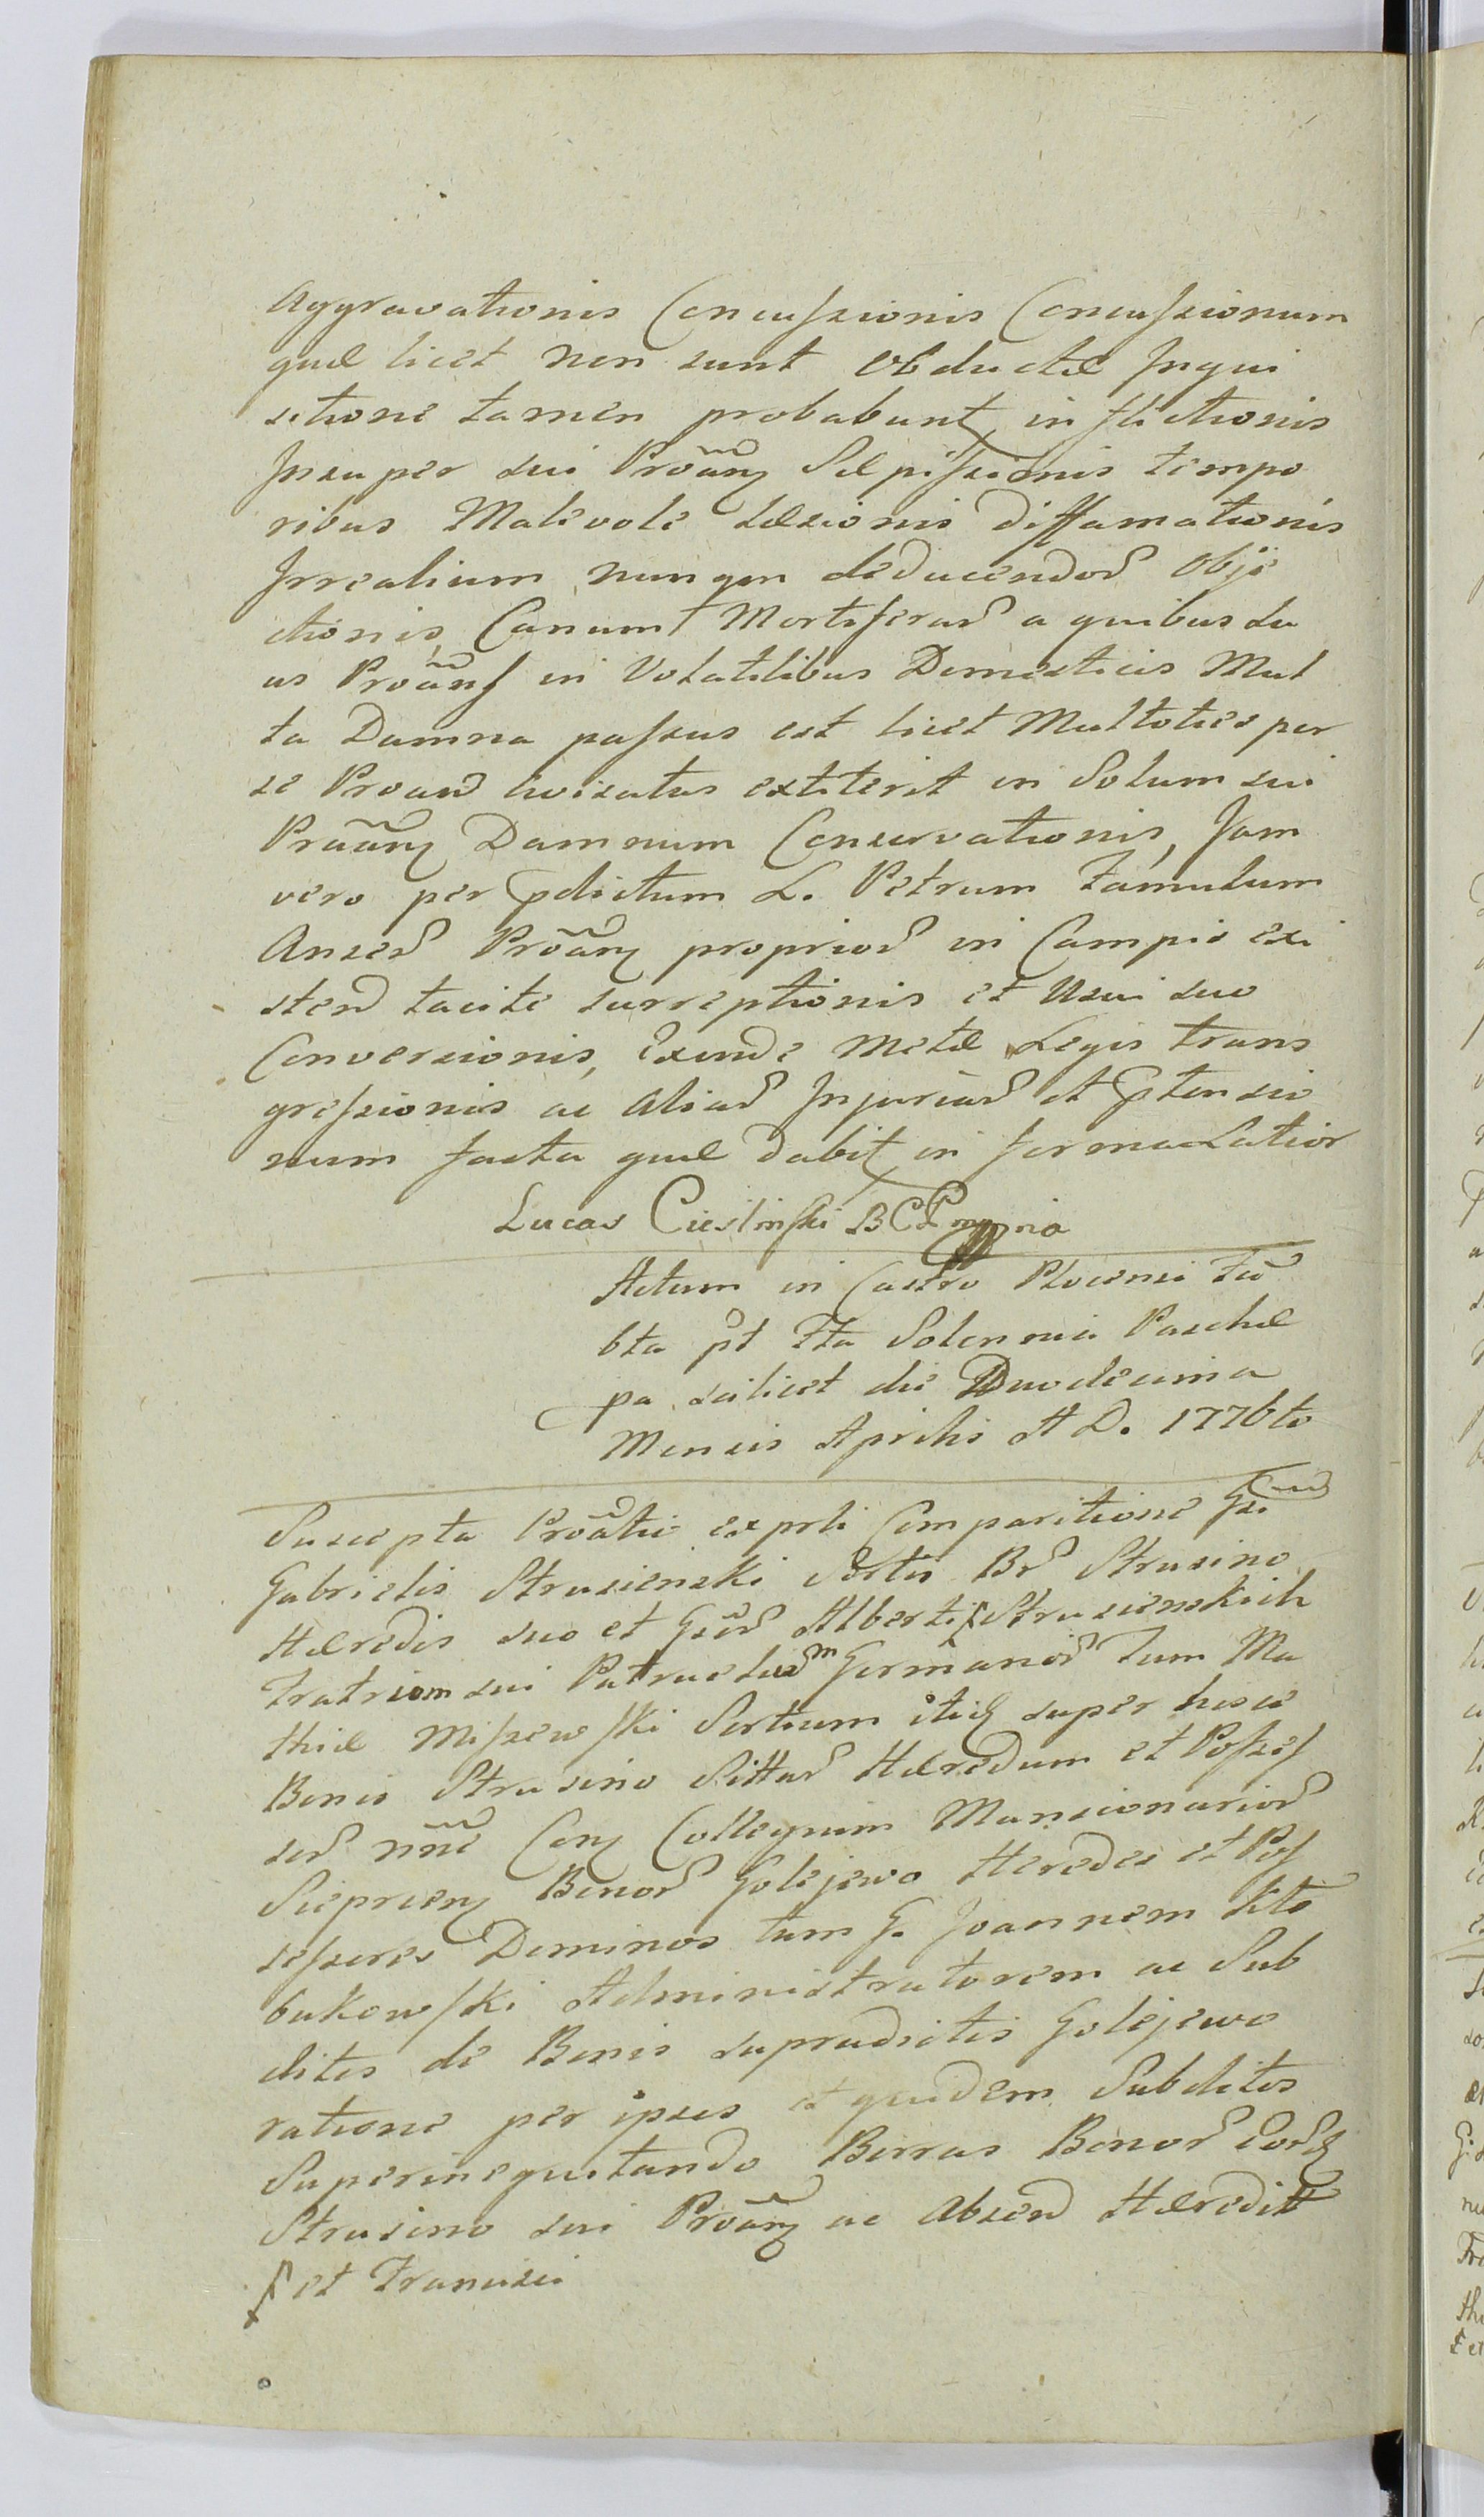 Aggravationis Concussionis Concussionum
quæ licet non sunt obductæ Inqui
sitione tamen probabunt, inflictionis
Insuper sui Proãn Sæpissionis tempo
ribus Malevole Læsionis Diffamationis
Irrealium nunqm deducendor Obje
ctionis, Canum Mortiferar a quibus Su
us Proãns in Volatilibus Domesticis Mul
ta Damna passus est licet Multoties per
se Proand avisatus extiterit in Solum sui
Proãn Damnum Conservationis, Jam
vero per pdictum L. Petrum Famulum
Anser Proãn proprior in Campis exi
sten tacite surreptionis et Usui suo
Conversionis, Exinde Metæ Legis trans
gressionis ac Aliar Injuriar et ptensio
num facta quæ dabit in forma Latior
Lucas Cieslinski BCP mppria
Actum in Castro Plocensi Fer
bta pt Fta Solennia Paschæ
pa scilicet die Duodecima
Mensis Aprilis A D. 1776to
Suscepta Proãtio ex prli Comparitione Gsi
Gabrielis Strusienski Sortis Br Strusino
Hæredis suo et Gsor Alberti ſ Strusienskich
Fratriom sui Patruelium Germanor Tum Ma
thiæ Misrzewski Sortium itid super hisce
Bonis Strusino Sittar Hæredum et Posses
sor nñe Con Collegium Mansionarior
Sieprien Bonor Golejewo Heredes et Pos
sessores Dominos tum G. Joannem Kło
bukowski Administratorem ac Sub
ditos de Bonis supradictis Golejewo
ratione per ipsos et quidem Subditos
Superinequitando Borras Bonor eord
Strusino sui Proãn ac Absen Hæredit
ſ et Francisci